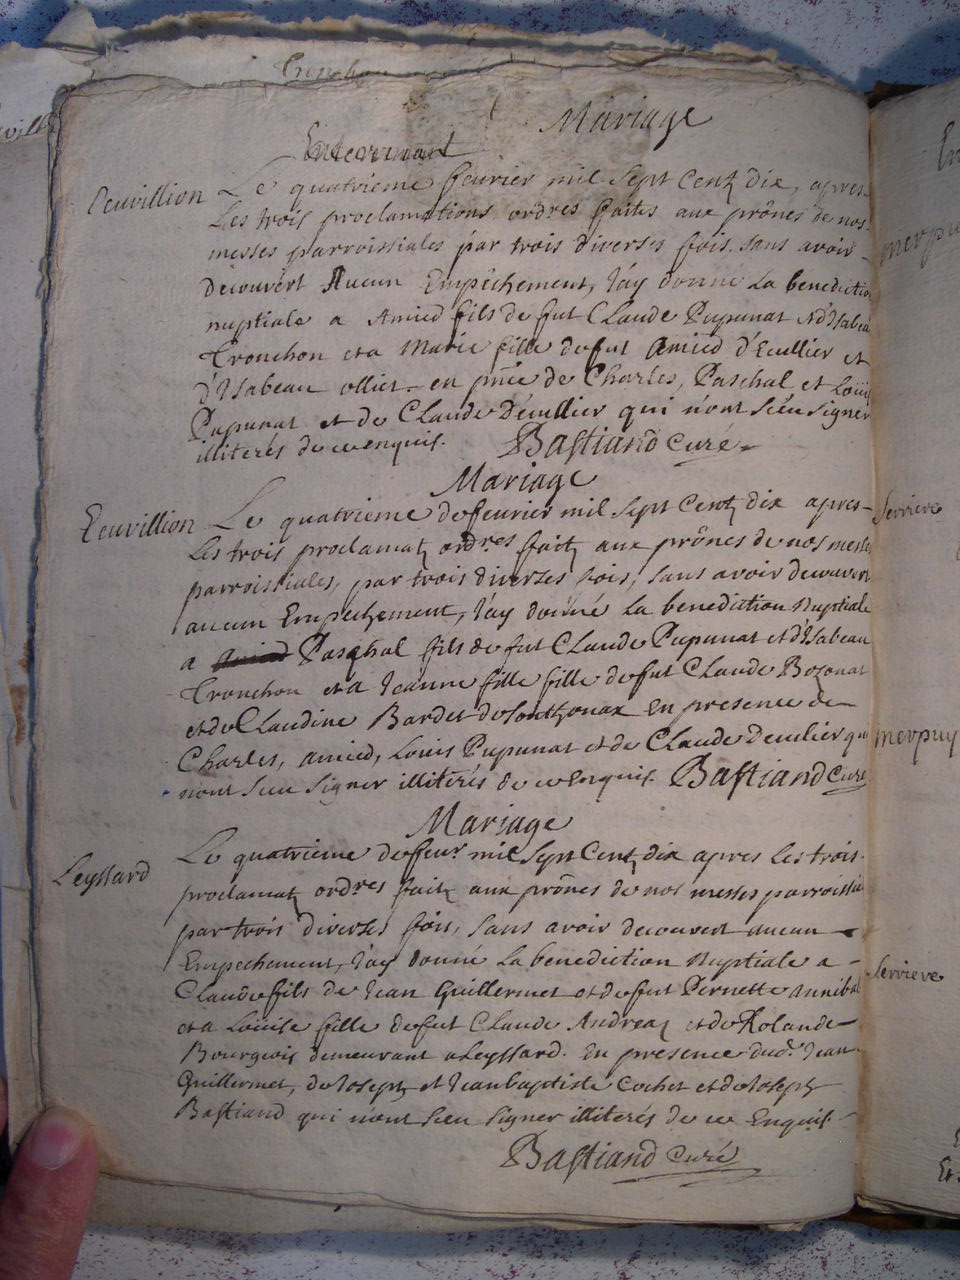 Mariage
Enterrement
Leuvillion Le quatrieme fevrier mil sept Centz dix, apres
Les trois proclamations ordres faites aux prônes de nos
messes parroissiales par trois diverses fois, sans avoir
decouvert Aucun Empêchement, J'ay donné La benediction
nuptiale a Amied fils de fut CLaude Pupunat et d'Isabeau
Tronchon et a Marie fille de fut Amied d'Ecullier et
d'Isabeau ollier en pnce de Charles, Paschal et Loüis
Pupunat et de CLaude Décullier qui n'ont sceu signer
illiterés de ce enquis. Bastiand Curé
Mariage
Leuvillion Le quatrieme de fevrier mil sept Centz dix apres
Les trois proclamatz ordres faitz aux prônes de nos messes
parroissiales, par trois diverses fois, sans avoir decouvert
aucun Empêchement, J'ay donné La benediction Nuptiale
a Paschal fils de fut CLaude Pupunat et d'Isabeau
Tronchon et a Jeanne fille fille de fut CLaude Bozonat
et de CLaudine Bardet de En presence de
Charles, amied, Louis Pupunat et de CLaude Deculier qui
n'ont sceu signer illiterés de ce enquis. Bastiand Curé
Mariage
Leyssard Le quatrieme de feur. mil sept Centz dix apres Les trois
proclamatz ordres faitz aux prônes de nos messes parroissia
par trois diverses fois, sans avoir decouvert aucun
Empechement, J'ay donné La benediction Nuptiale a
CLaude fils de Jean Guillermet et de fut Pernette Annibal
et a Loüise fille de fut CLaude Andreaz et de Rolande
Bourgeois demeurant a Leyssard. En presence dud. Jean
Guillermet, de Joseph et Jean baptiste Cochet et de Joseph
Bastiand qui n'ont sceu signer illiterés de ce Enquis.
Bastiand Curé
Serrieve
merpuy
Serrieve